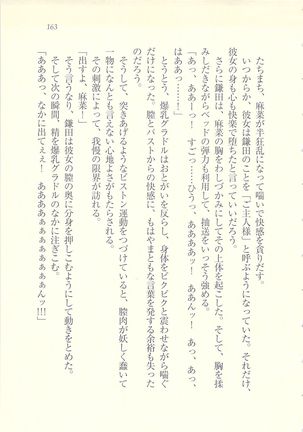 163
たちまち、麻菜が半狂乱になって喘いで快感を貪りだす。
いつからか、彼女は鎌田のことを「ご主人様」と呼ぶようになっていた。それだけ、
彼女の身も心も快楽で堕ちたと言っていいだろう。
さらに鎌田は、麻菜の胸をわしづかみにしてその上体を起こした。そして、胸を揉
みしだきながらベッドの弾力も利用して、抽送をいっそう強める。
「あっ、ああーっ! すごっ……ひうっ、ああああっ! ああんッ! あっ、あっ、
はああっ………!」
とうとう、爆乳グラドルはおとがいを反らし、身体をピクピクと震わせながら喘ぐ
だけになった。膣とバストからの快感に、もはやまともな言葉を発する余裕も失った
のだろう。
そうして、突きあげるようなピストン運動をつづけていると、膣肉が妖しく蠢いて
一物になんとも言えない心地よさがもたらされる。
その刺激によって、我慢の限界が訪れる。
「出すよ、麻菜」
そう言うなり、鎌田は彼女の膣の奥に分身を押しこむようにして動きをとめた。
そして次の瞬間、精を爆乳グラドルのなかに注ぎこむ。
「あああっ、なかに出てぇぇ! ああああぁぁぁぁぁぁぁんッ!!!」